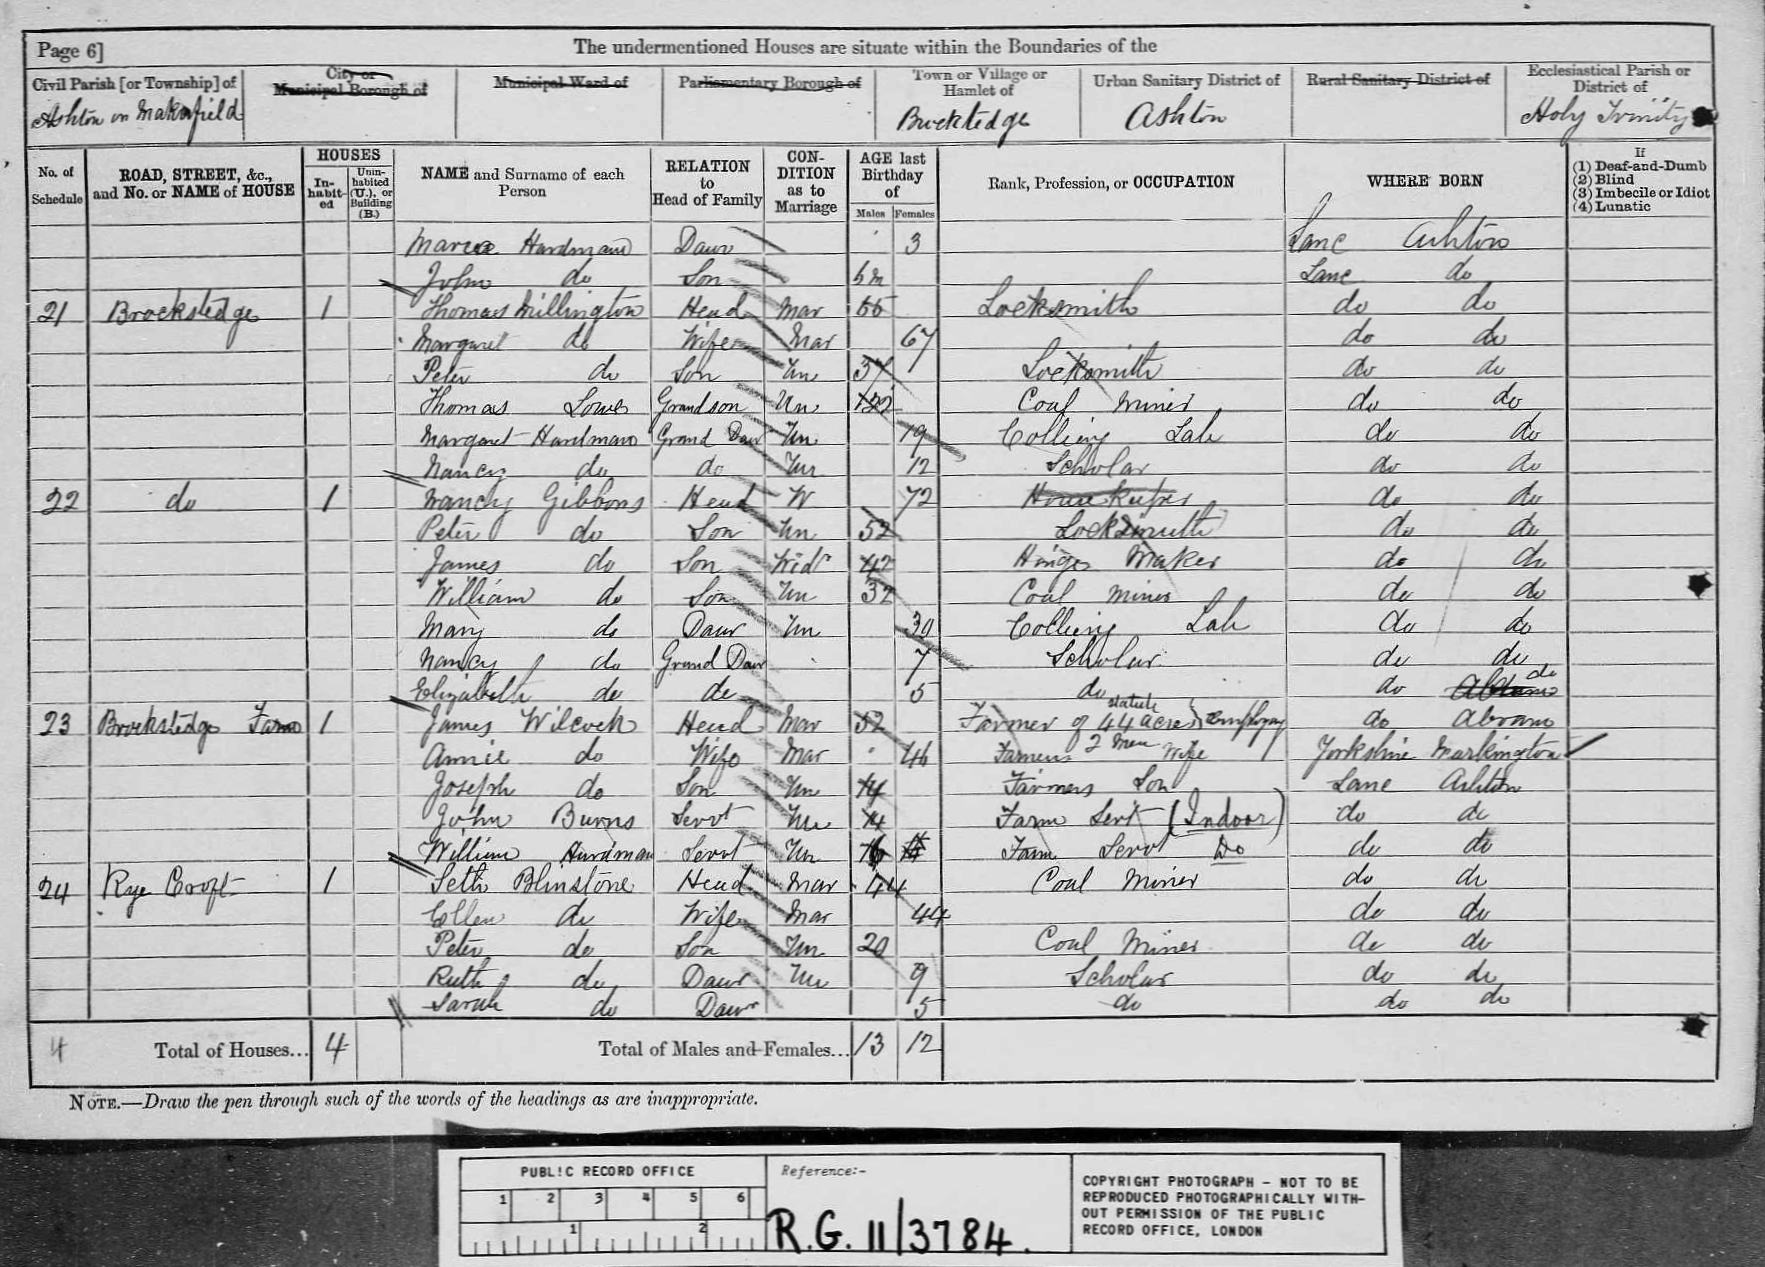 Page 6] The undermentioned Houses are situate within the Boundaries of the
Civil Parish [or Township] of City or Municipal Borough of Municipal Ward of Parliamentary Borough of Town or Village or Hamlet of Urban Sanitary District of Rural Sanitary District of Ecclesiastical Parish or District of
Ashton in Makerfield Ashton Holy Trinity
No. of Schedule ROAD, STREET, &c., and No. or NAME of HOUSE HOUSES In-habit-ed Unin-habited (U.), or Building (B.) NAME and Surname of each Person RELATION to Head of Family CON-DITION as to Marriage AGE last Birthday of Males Females Rank, Profession, or OCCUPATION WHERE BORN If (1) Deaf-and-Dumb (2) Blind (3) Imbecile or Idiot (4) Lunatic
Hardman Daur 3 Lanc Ashton
John do Son 6m Lanc do
21 Brockstedge 1 Thomas Millington Head Mar Locksmith do do
Margaret do Wife Mar 67 do do
Peter do Son Un 37 Locksmith do do
Thomas Lowe Grandson Un 22 Coal Miner do do
Margaret Hardman Grand Daur Un 19 Colliery Lab do do
Nancy do do Un 12 Scholar do do
22 do 1 Nancy Gibbons Head W 72 Housekeeper do do
Peter do Son Un 52 Locksmith do do
James do Son Widr 42 Hinge Maker do do
William do Son Un 32 Coal Miner do do
Mary do Daur Un 30 Colliery Lab do do
Nancy do Grand Daur 7 Scholar do do
Elizabeth do do 5 do do do
23 Brockstedge Farm 1 James Wilcock Head Mar 52 Farmer of 44 statute acres employing 2 men do Abram
Annie do Wife Mar 46 Farmers Wife Yorkshire Markington
Joseph do Son Un 14 Farmers Son Lanc Ashton
John Burns Servt Un 14 Farm Servt (Indoor) do do
William Hardman Servt Un 16 Farm Servt Do do do
24 Rye Croft 1 Seth Blinstone Head Mar 44 Coal Miner do do
Ellen do Wife Mar 44 do do
Peter do Son Un 20 Coal Miner do do
Ruth do Daur Un 9 Scholar do do
Sarah do Daur 5 do do do
4 Total of Houses... 4 Total of Males and Females... 13 12
NOTE.—Draw the pen through such of the words of the headings as are inappropriate.
PUBLIC RECORD OFFICE Reference:- COPYRIGHT PHOTOGRAPH - NOT TO BE
1 2 3 4 5 6 REPRODUCED PHOTOGRAPHICALLY WITH-
1 2 R.G. 11/3784. OUT PERMISSION OF THE PUBLIC
RECORD OFFICE, LONDON